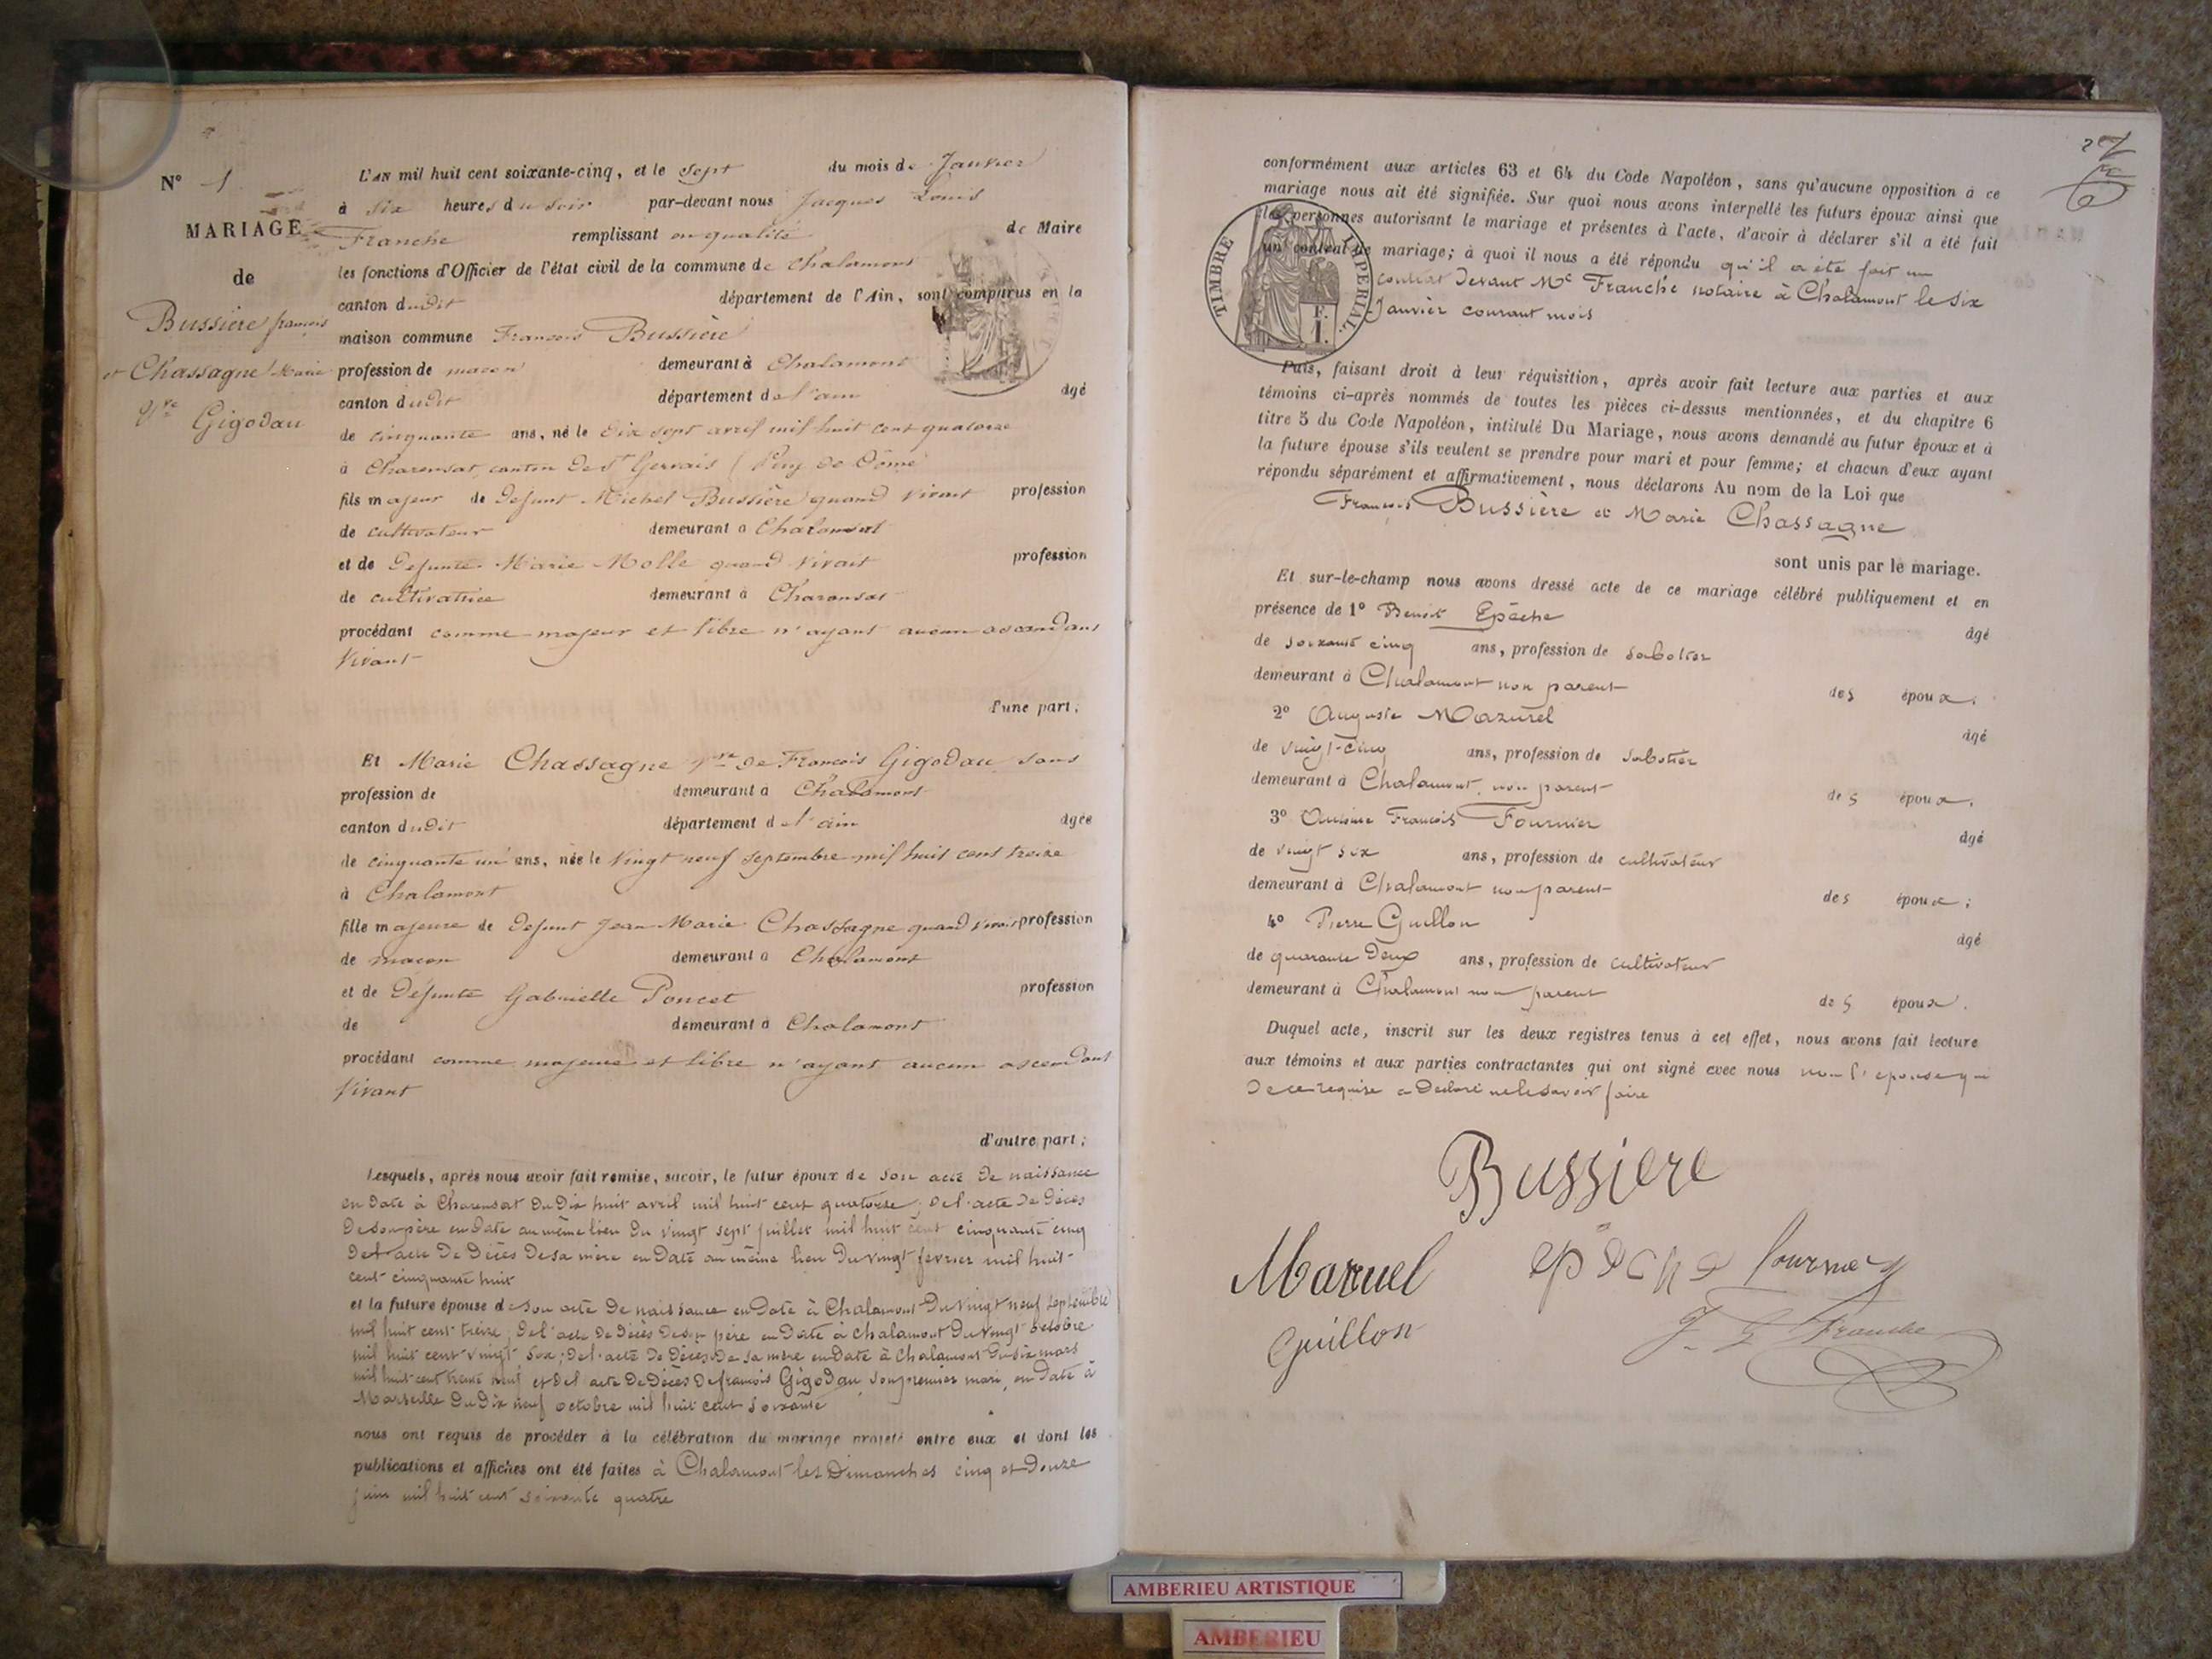 N° 1
MARIAGE
de
Bussière françois
et Chassagne Marie
Vve Gigodau
L'AN mil huit cent soixante-cinq, et le sept du mois de Janvier
à six heures du soir par-devant nous Jacques Louis
Franche remplissant en qualité de Maire
les fonctions d'Officier de l'état civil de la commune de Chalamont
canton dudit département de l'Ain, sont comparus en la
maison commune François Bussière
profession de macon demeurant à Chalamont
canton dudit département de l'ain âgé
de cinquante ans, né le dix sept avril mil huit cent quatorze
à Charensat canton de St Gervais (Puy de Dôme
fils majeur de defunt Michel Bussière quand vivait profession
de cultivateur demeurant à
et de defunte Marie Molle quand vivait profession
de cultivatrice demeurant à Charensat
procédant comme majeur et libre n'ayant aucun ascendant
vivant
d'une part;
Et Marie Chassagne vve de François Gigodau sans
profession de demeurant à Chalamont
canton dudit département de l'ain âgée
de cinquante un ans, née le vingt neuf septembre mil huit cent treize
à Chalamont
fille majeure de defunt Jean Marie Chassagne quand vivait profession
de macon demeurant à Chalamont
et de Défunte Gabrielle Poncet profession
de demeurant à Chalamont
procédant comme majeure et libre n'ayant aucun ascendant
vivant
d'autre part;
Lesquels, après nous avoir fait remise, savoir, le futur époux de son acte de naissance
en date à Charensat du dix huit avril mil huit cent quatorze; de l'acte de décès
de son père en date au même lieu du vingt sept juillet mil huit cent cinquante cinq
de l'acte de décès de sa mère en date au même lieu du vingt fevrier mil huit
cent cinquante huit
et la future épouse de son acte de naissance en date à Chalamont du vingt neuf septembre
mil huit cent treize; de l'acte de décès de son père en date à Chalamont du vingt octobre
mil huit cent vingt six; de l'acte de décès de sa mère en date à Chalamont du six mars
mil huit cent trente neuf et de l'acte de décès de françois Gigodau, son premier mari, en date à
Marseille du dix neuf octobre mil huit cent soixante
nous ont requis de procéder à la célébration du mariage projeté entre eux et dont les
publications et affiches ont été faites à Chalamont les Dimanches cinq et douze
juin mil huit cent soixante quatre
conformément aux articles 63 et 64 du Code Napoléon, sans qu'aucune opposition à ce
mariage nous ait été signifiée. Sur quoi nous avons interpellé les futurs époux ainsi que
les personnes autorisant le mariage et présentes à l'acte, d'avoir à déclarer s'il a été fait
un contrat de mariage; à quoi il nous a été répondu qu'il a été fait un
contrat devant Me Franche notaire à Chalamont le six
Janvier courant mois
TIMBRE IMPERIAL
F.
1.
Puis, faisant droit à leur réquisition, après avoir fait lecture aux parties et aux
témoins ci-après nommés de toutes les pièces ci-dessus mentionnées, et du chapitre 6
titre 5 du Code Napoléon, intitulé Du Mariage, nous avons demandé au futur époux et à
la future épouse s'ils veulent se prendre pour mari et pour femme; et chacun d'eux ayant
répondu séparément et affirmativement, nous déclarons Au nom de la Loi que
François Bussière et Marie Chassagne
sont unis par le mariage.
Et sur-le-champ nous avons dressé acte de ce mariage célébré publiquement et en
présence de 1° Benoit Epèche âgé
de soixante cinq ans, profession de sabotier
demeurant à Chalamont non parent des époux;
2° Auguste Mazurel âgé
de vingt-cinq ans, profession de sabotier
demeurant à Chalamont non parent des époux;
3° Antoine François Fournier âgé
de vingt six ans, profession de cultivateur
demeurant à Chalamont non parent des époux;
4° Pierre Guillon âgé
de quarante deux ans, profession de cultivateur
demeurant à Chalamont non parent des époux.
Duquel acte, inscrit sur les deux registres tenus à cet effet, nous avons fait lecture
aux témoins et aux parties contractantes qui ont signé avec nous non l'épouse qui
de ce requise a déclaré ne le savoir faire
Bussiere
Mazuel epèche fournier
Guillon Franche
AMBERIEU ARTISTIQUE
AMBERIEU